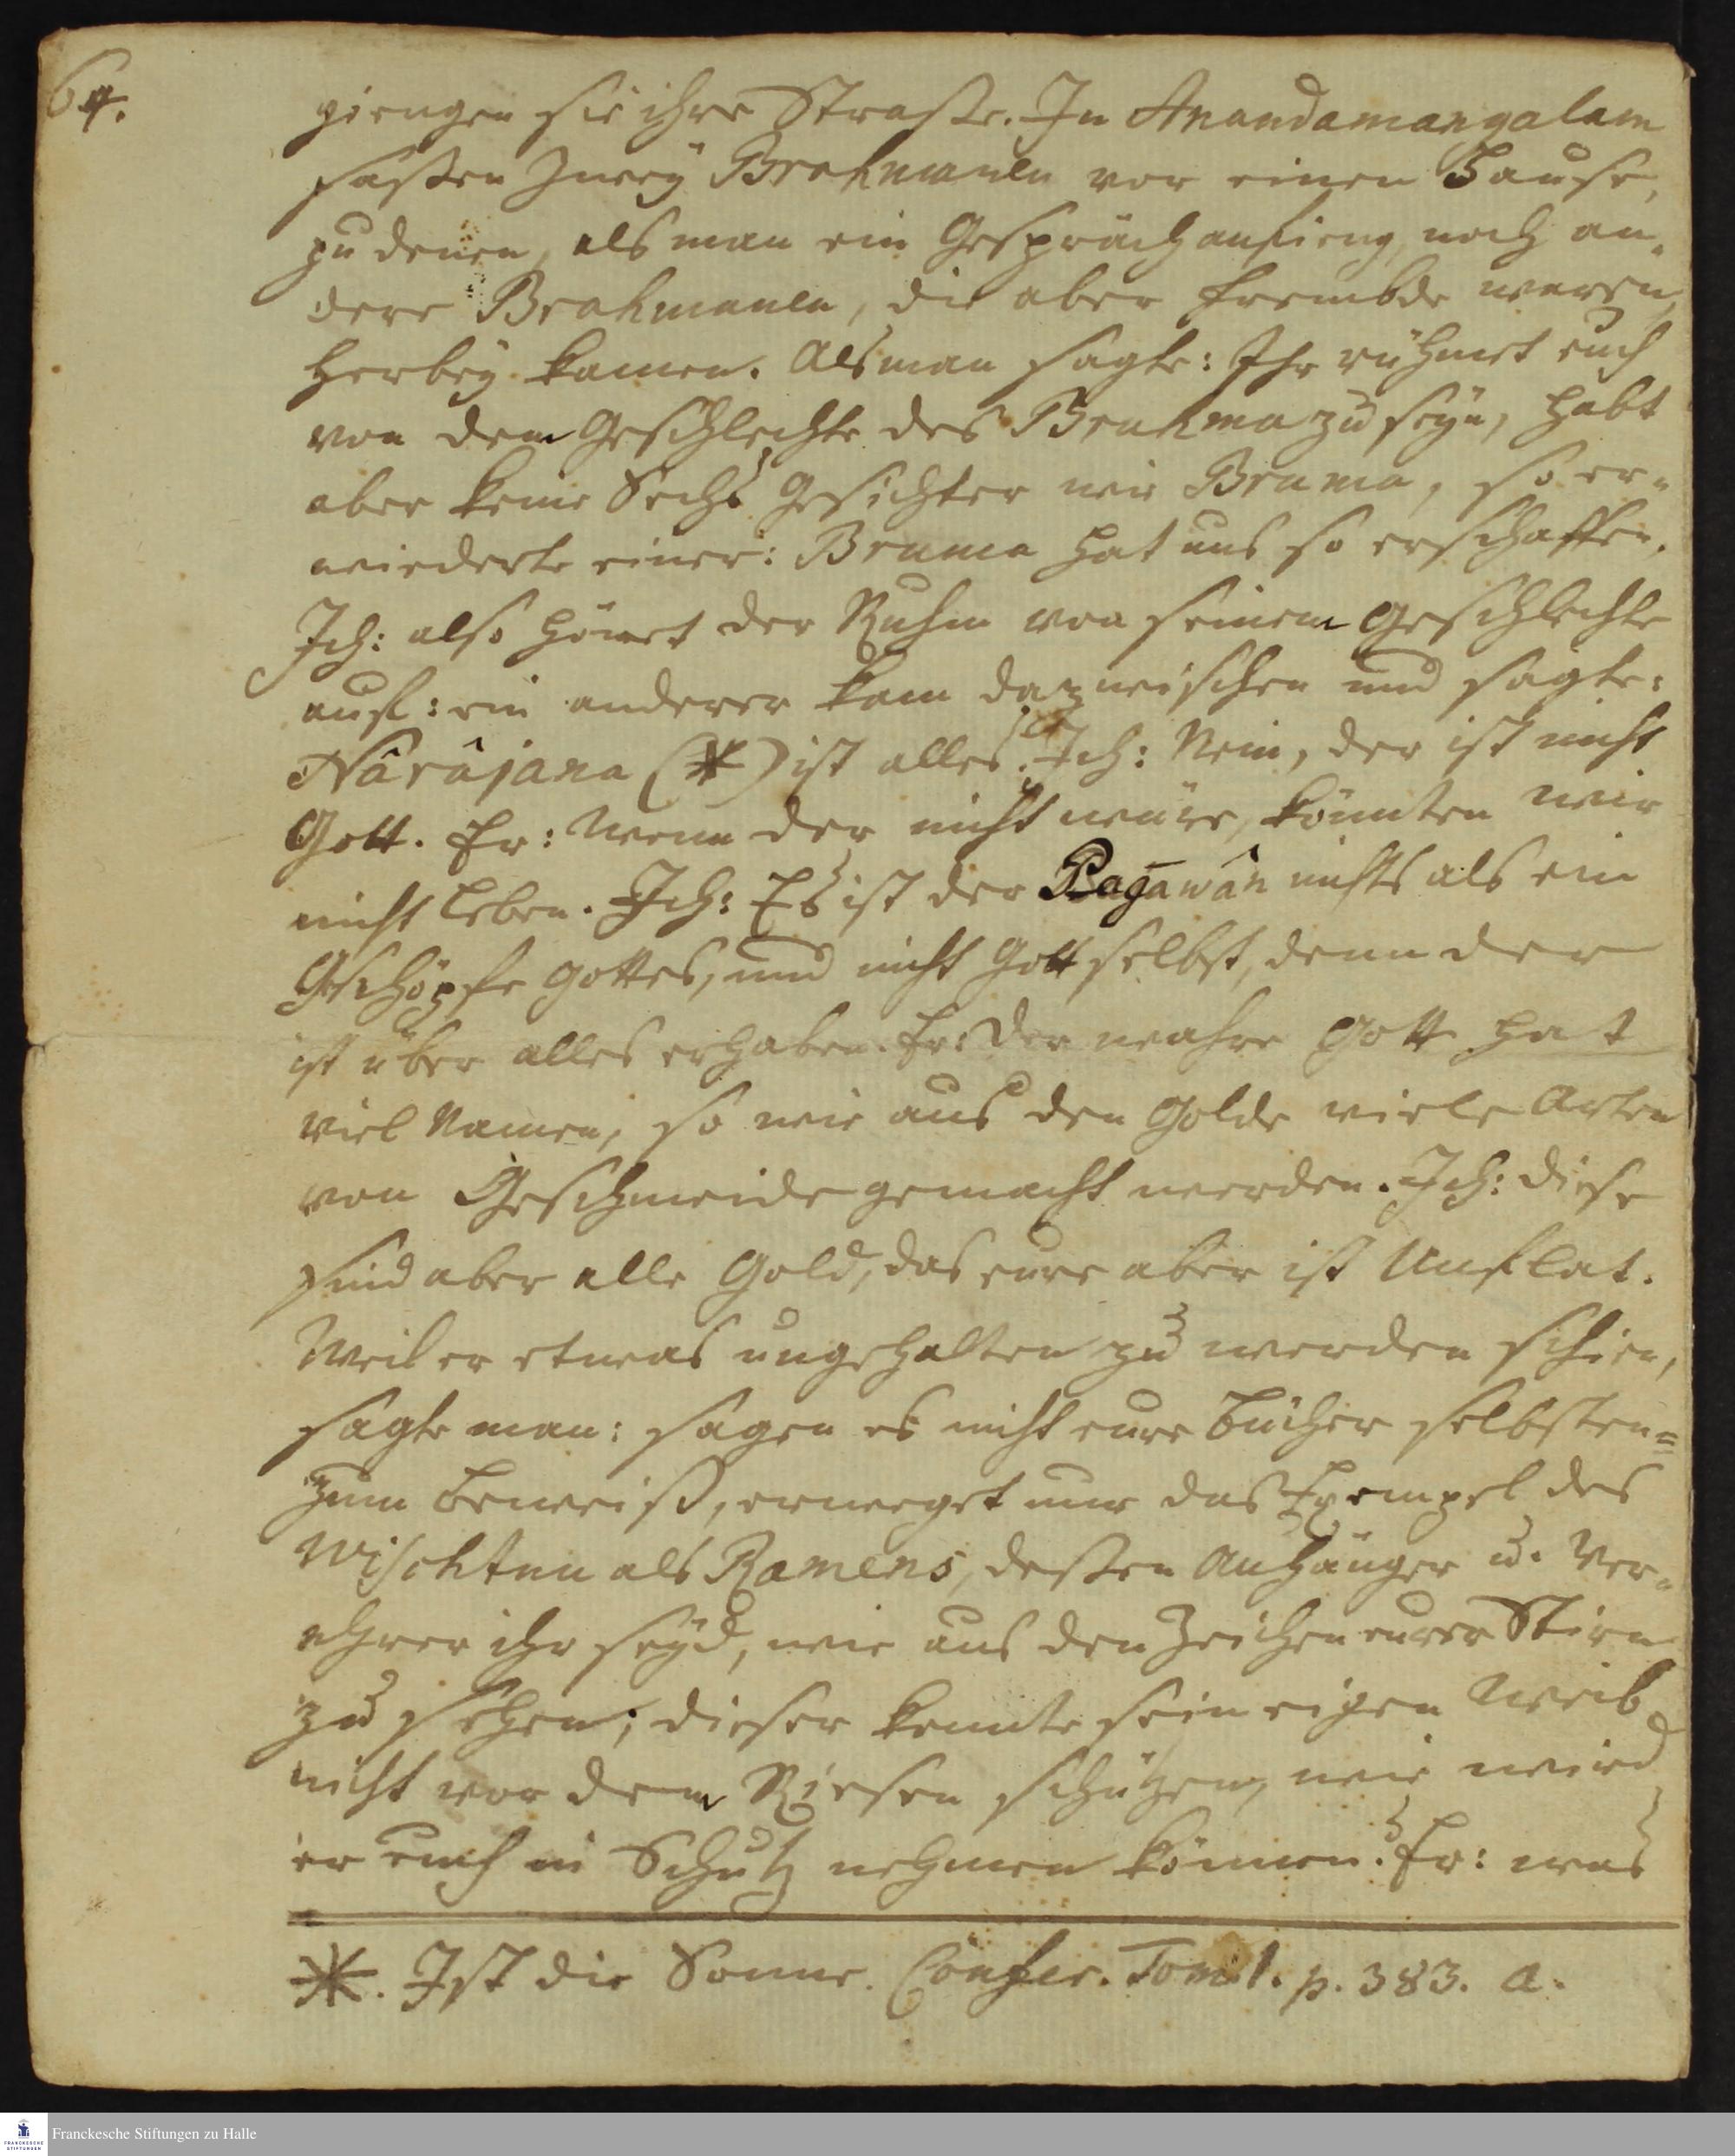 64.
giengen sie ihre Straße. In Anandamangalam
saßen zween Brahmanen vor einen Hause,
zu denen, als man ein Gespräch anfieng, noch an-
dere Brahmanen, die aber frembde waren,
herbey kamen. Als man sagte: Ihr rühmet euch
von dem Geschlechte des Brahma zu seyn, habt
aber keine Sechs Gesichter wie Bruma, so er-
wiederte einer: Bruma hat uns so erschaffen.
Ich: also höret der Ruhm von seinem Geschlechte
auf: ein anderer kam dazwischen und sagte:
Nârâjana (*) ist alles. Ich: Nein, der ist nicht
Gott. Er: Wenn der nicht wäre, könnten wir
nicht leben. Ich: Es ist der Pagawân nichts als ein
Geschöpfe Gottes, und nicht Gott selbst, denn der
ist über alles erhaben. Er: Der wahre Gott hat
viel Namen, so wie aus den Golde viele Arten
von Geschmeide gemacht werden. Ich: diese
sind aber alle Gold, das eure aber ist Unflat.
Weil er etwas ungehalten zu werden schien,
sagte man: sagen es nicht eure Bücher selbsten=
zum Beweiß, erweget nur das Exempel des
Wischtnu als Ramens, deßen Anhänger u. Ver-
ehrer ihr seyd, wie aus den Zeichen eurer Stirn
zu sehen; dieser konnte sein eigen Weib
nicht vor dem Riesen schützen, wie wird
er euch in Schutz nehmen können? Er: was
*. Ist die Sonne. Confer. Tom: 1. p. 383. a.
Franckesche Stiftungen zu Halle
FRANCKESCHE STIFTUNGEN